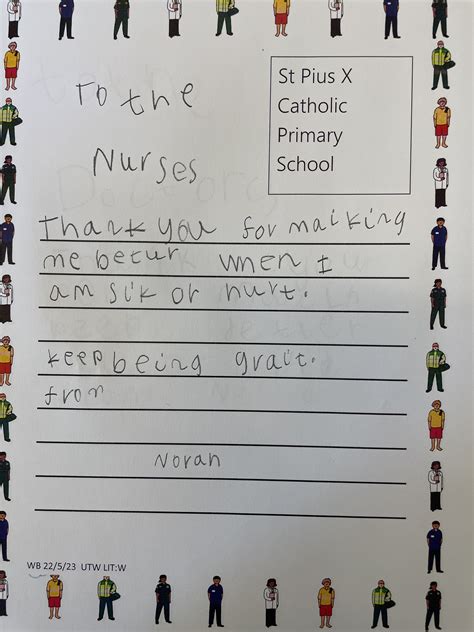 To the
Nurses
St Pius X
Catholic
Primary
School
Thank you for maiking
me betur when I
am sik or hurt.
keep being grait.
from
Norah
WB 22/5/23 UTW LIT:W